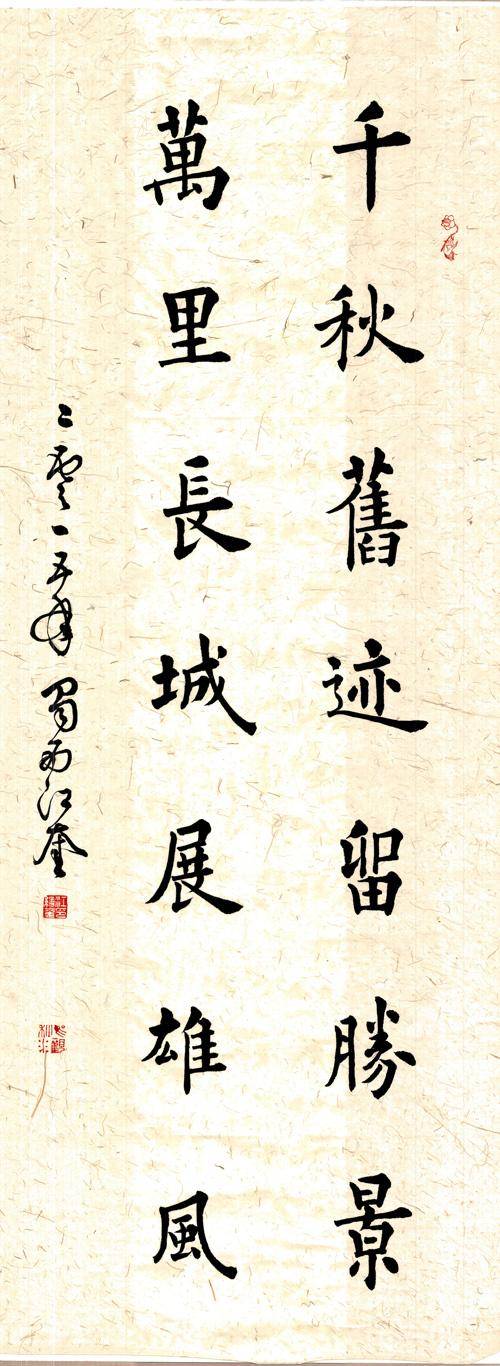 千秋舊迹留勝景
萬里長城展雄風
二零一五年 蜀西江奎